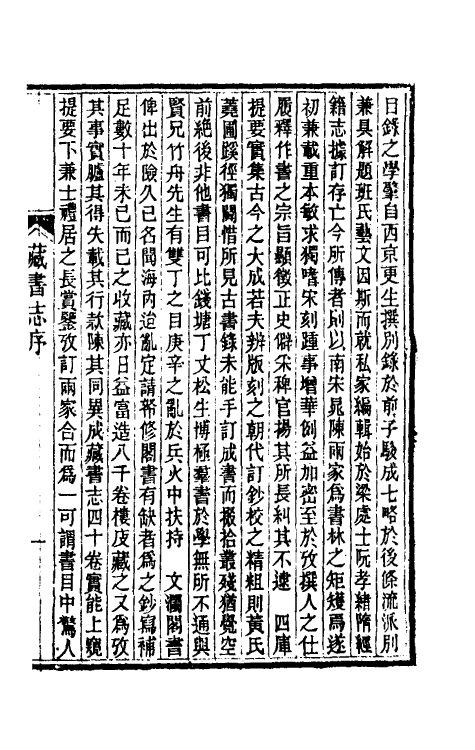 目錄之學肇自西京更生撰別錄於前子駿成七略於後條流派別
兼具解題班氏藝文因斯而就私家編輯始於梁處士阮孝緒隋經
籍志據訂存亡今所傳者則以南宋晁陳兩家爲書林之矩矱焉遂
初兼載重本敏求獨嗜宋刻踵事增華例益加密至於攷撰人之仕
履釋作書之宗旨顯徵正史僻采稗官揚其所長糾其不逮 四庫
提要實集古今之大成若夫辨版刻之朝代訂鈔校之精粗則黃氏
蕘圃蹊徑獨闢惜所見古書錄未能手訂成書而掇拾叢殘猶覺空
前絕後非他書目可比錢塘丁丈松生博極羣書於學無所不通與
賢兄竹舟先生有雙丁之目庚辛之亂於兵火中扶持 文瀾閣書
俾出於險久已名聞海內迨亂定請帑修閣書有缺者爲之鈔寫補
足數十年未已而已之收藏亦日益富造八千卷樓庋藏之又爲攷
其事實臚其得失載其行款陳其同異成藏書志四十卷實能上窺
提要下兼士禮居之長賞鑒攷訂兩家合而爲一可謂書目中驚人
藏書志序
一